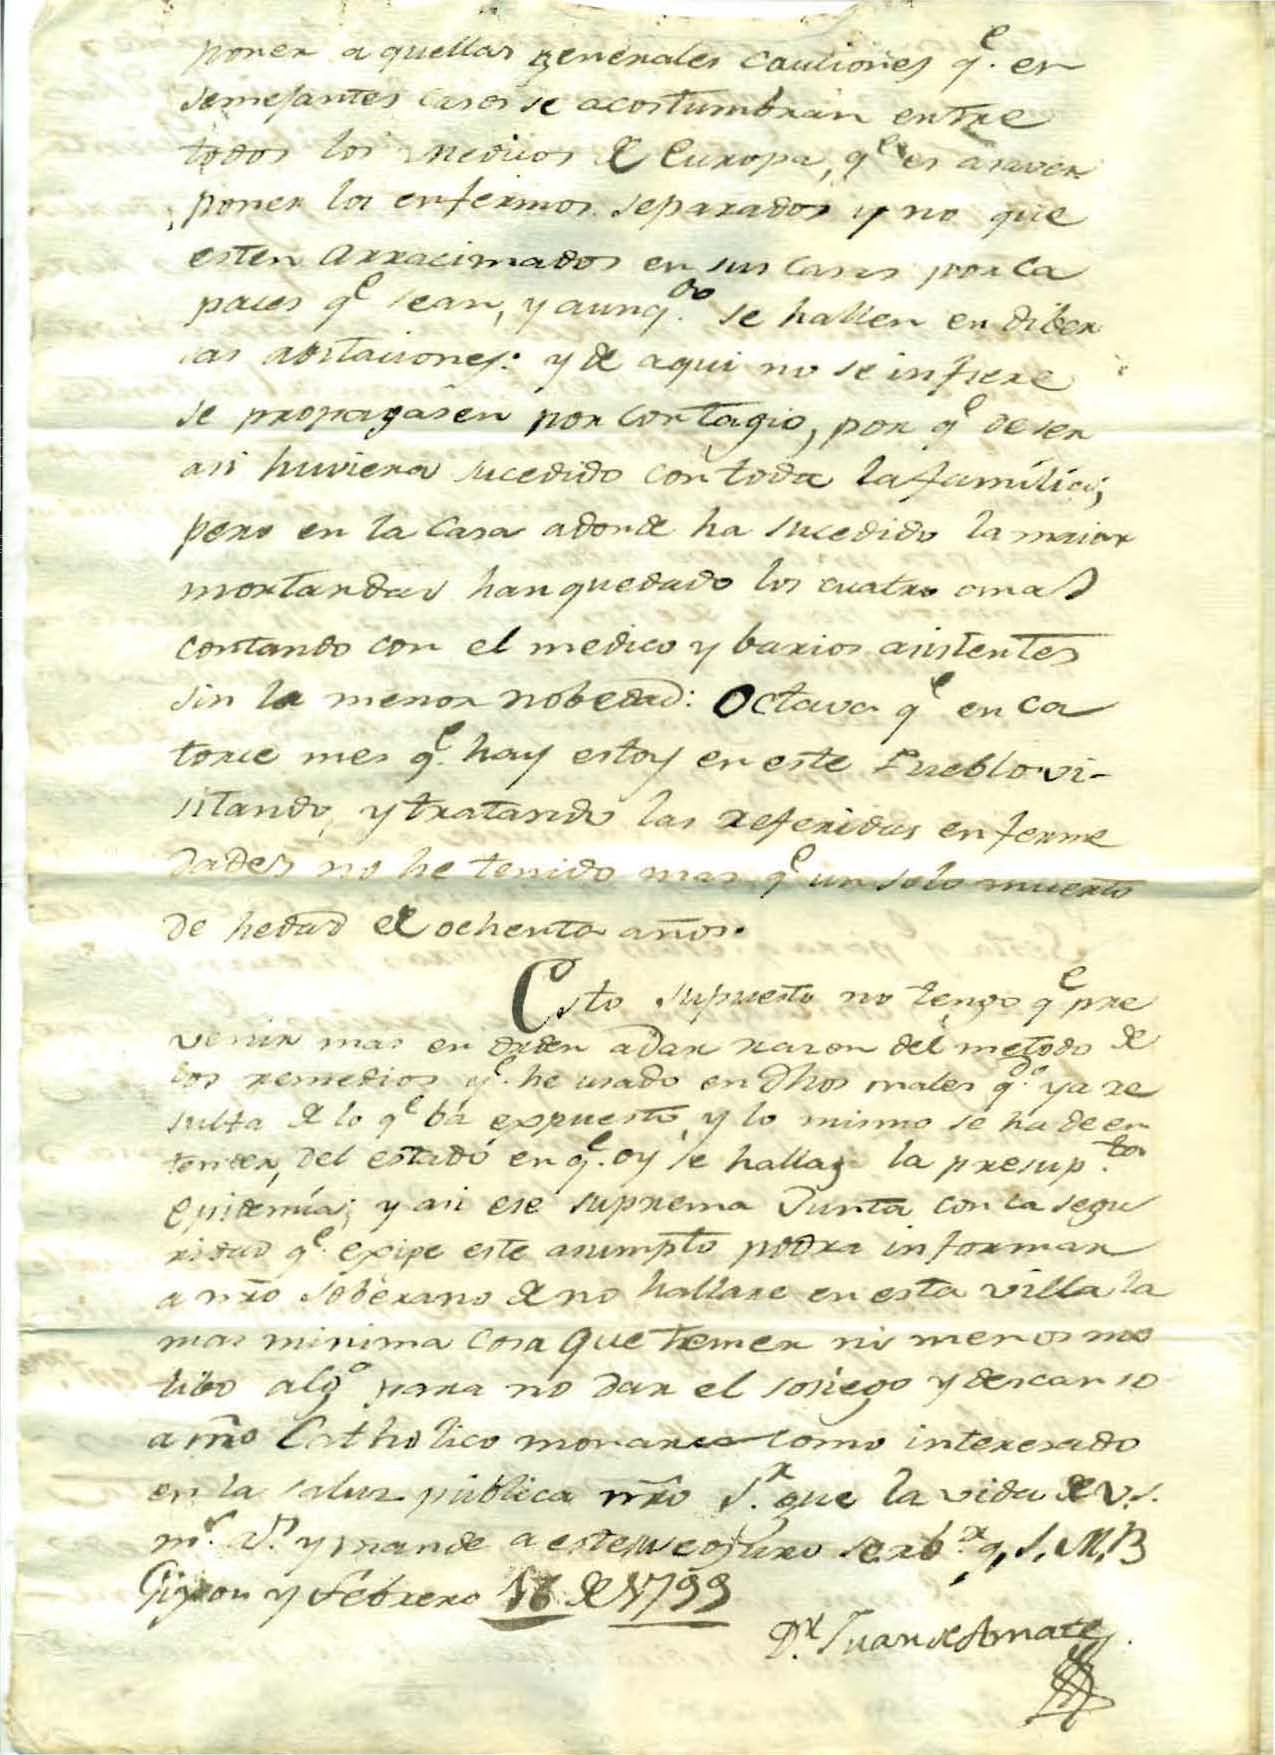 poner a quellas generales cautiones q.e en
semejantes casos se acostumbran entre
todos los medicos de Europa, q.e es asaver
poner los enfermos separados y no que
esten arracimados en sus casas por ca
paces q.e sean, y aunq.do se hallen en diber
sas abitaciones: y de aqui no se infiere
se propagasen por contagio, por q.e de ser
asi huviera sucedido con toda la familia;
pero en la casa adonde ha sucedido la maior
mortandad han quedado los cuatro o mas
contando con el medico y barios asistentes
sin la menor nobedad: Octava q.e en ca
torce mes q.e hay estoy en este Pueblo vi-
sitando, y tratando las referidas enferme
dades no he tenido mas q.e un solo muerto
de hedad de ochenta años.
Esto supuesto no tengo q.e pre
venir mas en orden a dar razon del metodo de
los remedios q.e he usado en dhos males q.e ya re
sulta de lo q.e ba expuesto, y lo mismo se ha de en
tender, del estado en q.e oy se halla la presup.ta
epidemia; y asi ese suprema Junta con la segu
ridad q.e exipe este asumpto podra informar
a nrõ soberano de no hallarse en esta villa la
mas minima cosa que temer ni menos mo
tibo alg.o para no dar el sosiego y descanso
a nrõ Catholico monarca como interesado
en la salud publica nrõ S.r gue la vida de V.S.
m.s a.s y mande a este su seguro serb.r q. S. M. B
Gijon y febrero 16 de 1799
D.r Juan de Amate